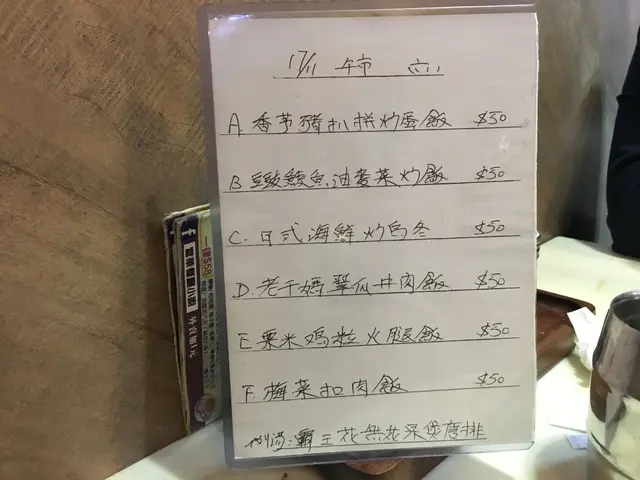 17/11 午市 六
A. 香芧豬扒拼炒蛋飯 $50
B. 豉鯪魚油麥菜炒飯 $50
C. 日式海鮮炒烏冬 $50
D. 老干媽翠瓜丼肉飯 $50
E. 粟米鸡粒火腿飯 $50
F. 梅菜扣肉飯 $50
例湯:霸王花無花菓煲唐排